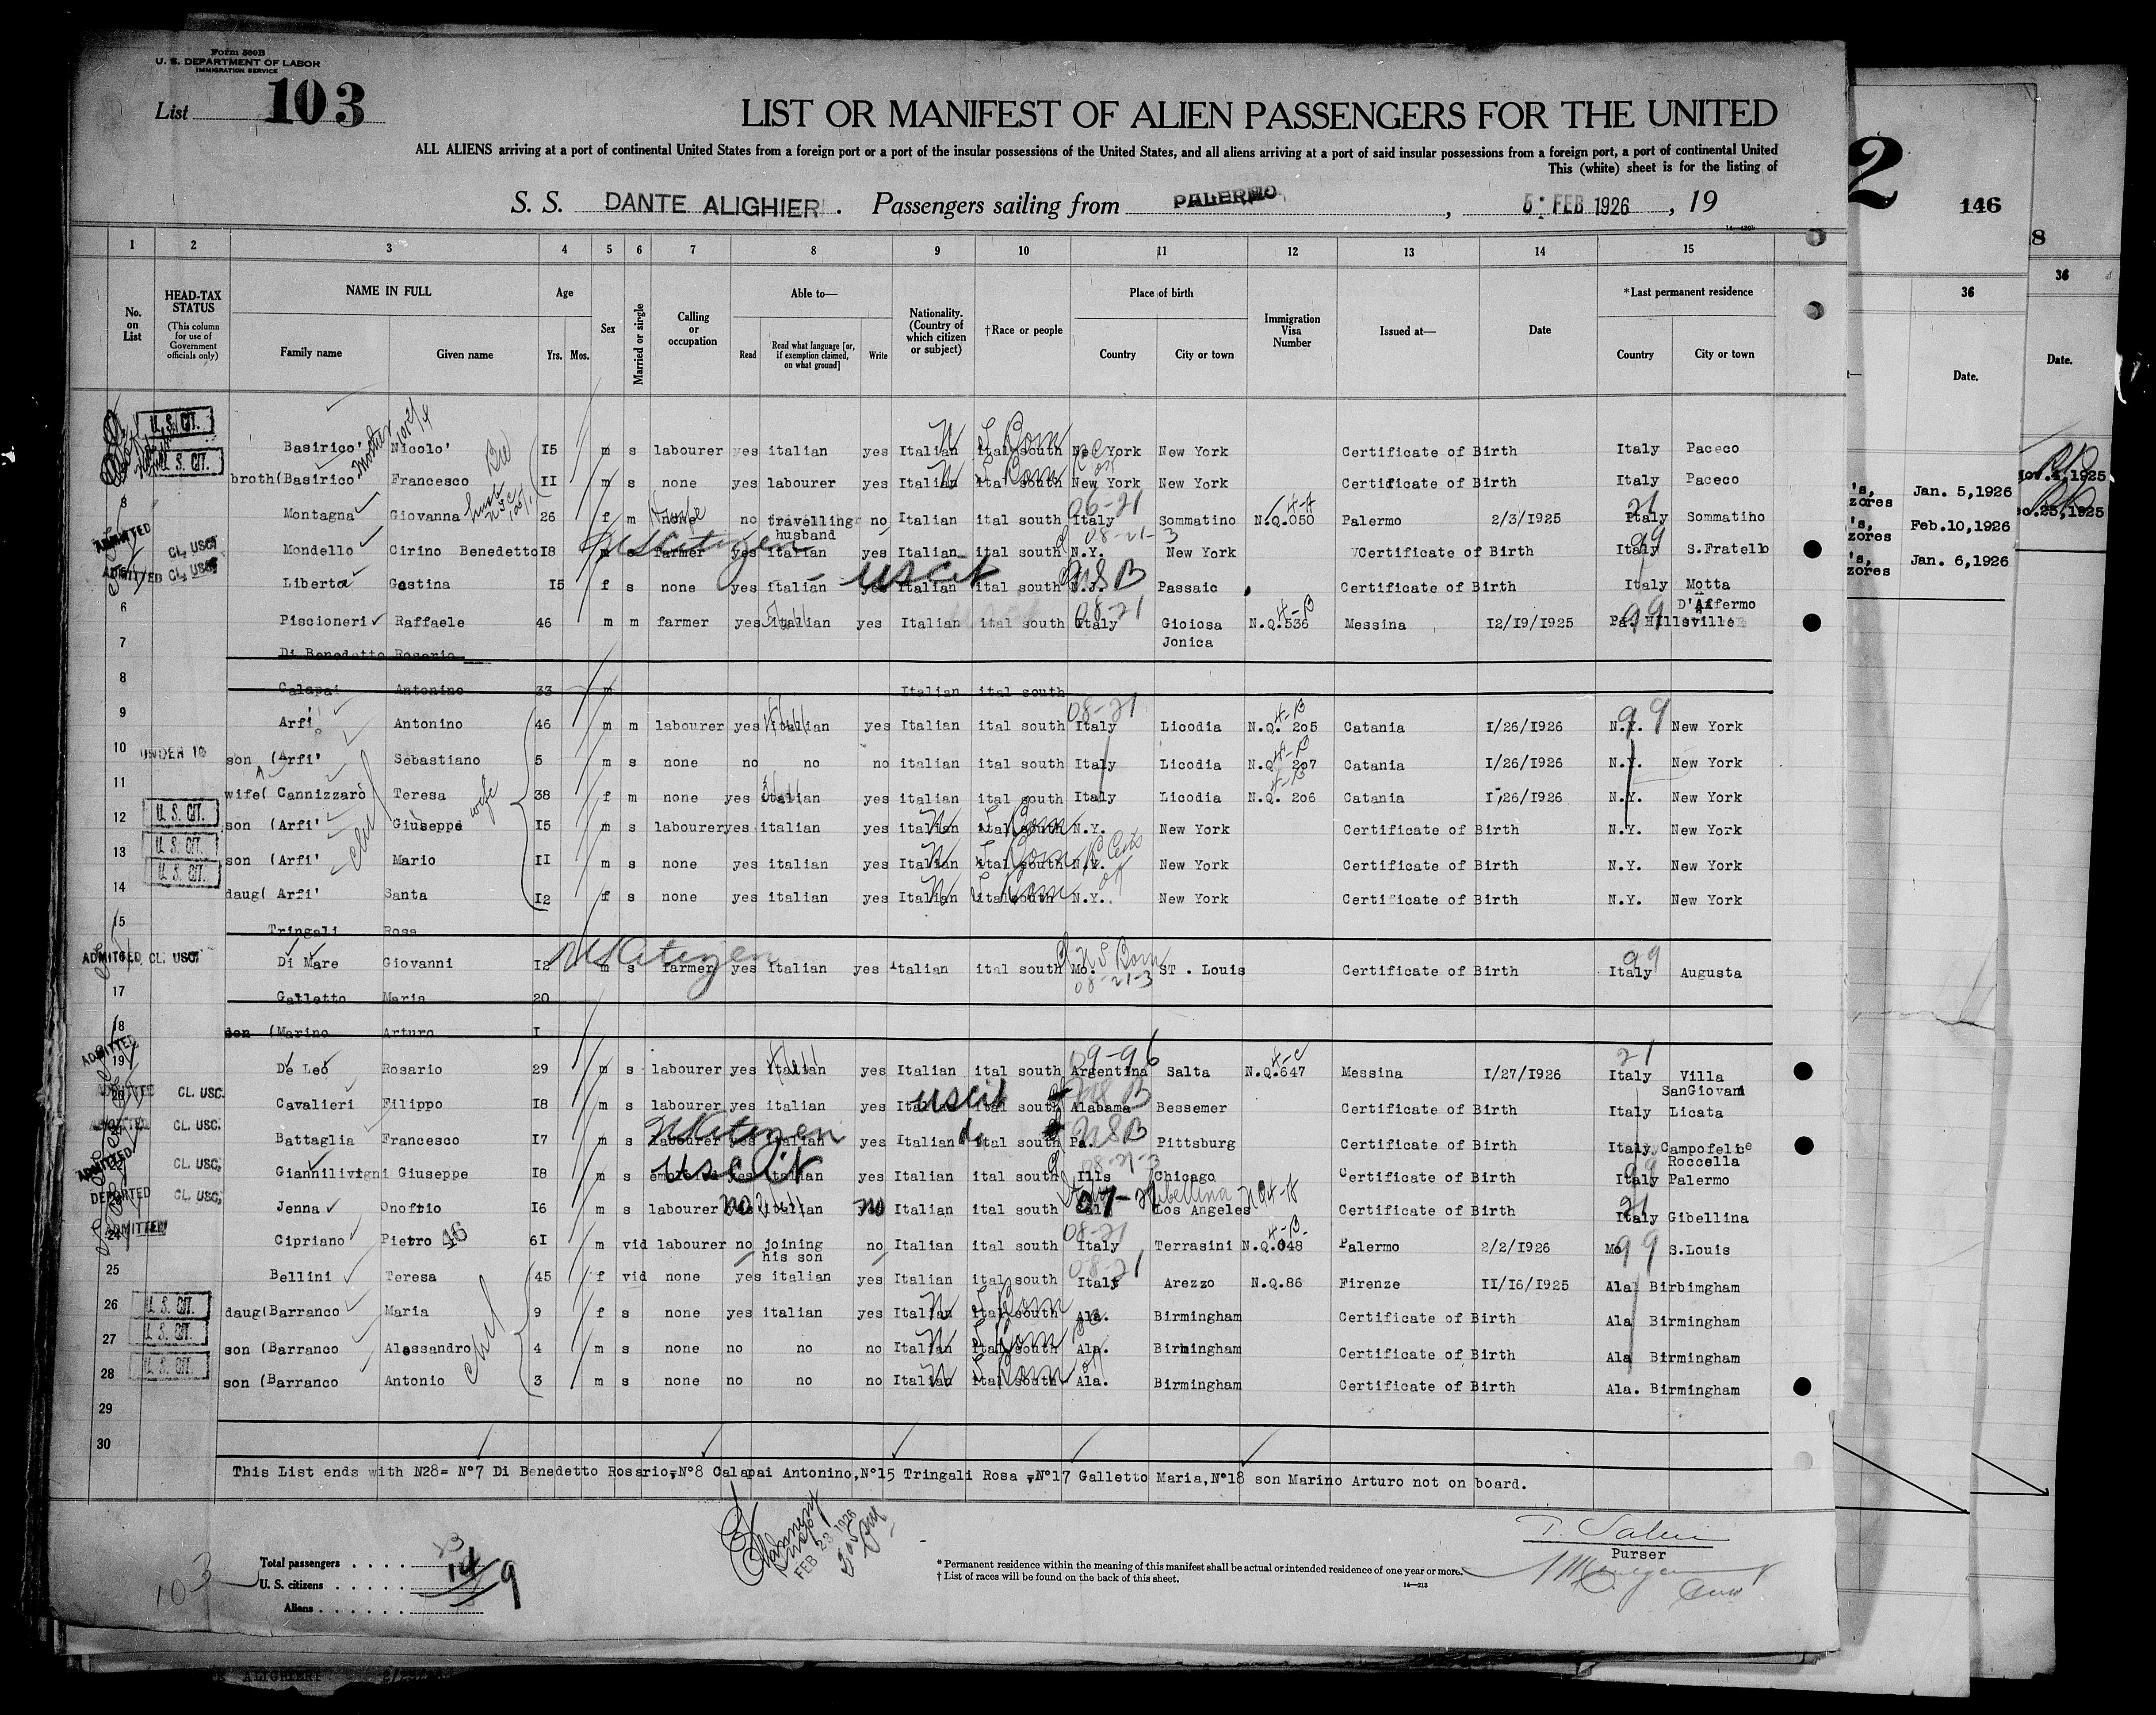 Form 500B
U. S. DEPARTMENT OF LABOR
IMMIGRATION SERVICE
List 103
LIST OR MANIFEST OF ALIEN PASSENGERS FOR THE UNITED
ALL ALIENS arriving at a port of continental United States from a foreign port or a port of the insular possessions of the United States, and all aliens arriving at a port of said insular possessions from a foreign port, a port of continental United
This (white) sheet is for the listing of
S. S. DANTE ALIGHIERI. Passengers sailing from PALERMO, 5 FEB 1926, 19
1 2 3 4 5 6 7 8 9 10 11 12 13 14 15
No. on List
HEAD-TAX STATUS
(This column for use of Government officials only)
NAME IN FULL
Family name Given name
Age
Yrs. Mos.
Sex
Married or single
Calling or occupation
Able to—
Read
Read what language [or, if exemption claimed, on what ground]
Write
Nationality. (Country of which citizen or subject)
†Race or people
Place of birth
Country City or town
Immigration Visa Number
Issued at—
Date
*Last permanent residence
Country City or town
U. S. CIT. Basirico' Nicolo' 15 m s labourer yes italian yes Italian ital south New York New York Certificate of Birth Italy Paceco
U. S. CIT. broth(Basirico Francesco 11 m s none yes labourer yes Italian ital south New York New York Certificate of Birth Italy Paceco
3 Montagna Giovanna 26 f m none no travelling no Italian ital south Italy Sommatino N.Q.050 Palermo 2/3/1925 Italy Sommatino
husband
ADMITTED CL. USC. Mondello Cirino Benedetto 18 m s farmer yes italian yes Italian ital south N.Y. New York Certificate of Birth Italy S.Fratello
US Citizen 08-21-3
ADMITTED CL. USC. Liberta Gastina 15 f s none yes italian yes Italian ital south N.J. Passaic Certificate of Birth Italy Motta
D'Affermo
US cit USB
6 Piscioneri Raffaele 46 m m farmer yes italian yes Italian ital south Italy Gioiosa N.Q.536 Messina 12/19/1925 Pa. Hillsville
Jonica
7 Di Benedetto Rosario
8 Calapai Antonino 33 m Italian ital south
9 Arfi' Antonino 46 m m labourer yes italian yes Italian ital south Italy Licodia N.Q. 205 Catania 1/26/1926 N.Y. New York
10 UNDER 16 son (Arfi' Sebastiano 5 m s none no no no italian ital south Italy Licodia N.Q. 207 Catania 1/26/1926 N.Y. New York
11 wife( Cannizzarò Teresa 38 f m none yes italian yes italian ital south Italy Licodia N.Q. 206 Catania 1/26/1926 N.Y. New York
12 U. S. CIT. son (Arfi' Giuseppe 15 m s labourer yes italian yes italian ital south N.Y. New York Certificate of Birth N.Y. New York
13 U. S. CIT. son (Arfi' Mario 11 m s none yes italian yes Italian ital south N.Y. New York Certificate of Birth N.Y. New York
14 U. S. CIT. daug( Arfi' Santa 12 f s none yes italian yes Italian ital south N.Y. New York Certificate of Birth N.Y. New York
15 Tringali Rosa
ADMITTED CL. USC. Di Mare Giovanni 12 m s farmer yes Italian yes Italian ital south Mo. ST . Louis Certificate of Birth Italy Augusta
US Citizen US Born 08-21-3
17 Galletto Maria 20
18 son (Marino Arturo 1
ADMITTED 19 De Leo Rosario 29 m s labourer yes italian yes Italian ital south Argentina Salta N.Q.647 Messina 1/27/1926 Italy Villa
SanGiovani
CL. USC. Cavalieri Filippo 18 m s labourer yes italian yes Italian ital south Alabama Bessemer Certificate of Birth Italy Licata
CL. USC. Battaglia Francesco 17 m s labourer yes italian yes Italian ital south Pa. Pittsburg Certificate of Birth Italy Campofelice
Roccella
ADMITTED CL. USC. Giannilivigni Giuseppe 18 m s yes italian yes Italian ital south Ills Chicago Certificate of Birth Italy Palermo
DEPARTED CL. USC. Jenna Onofrio 16 m s labourer no italian no Italian ital south Los Angeles Certificate of Birth Italy Gibellina
24 ADMITTED Cipriano Pietro 61 m vid labourer no joining no Italian ital south Italy Terrasini N.Q.048 Palermo 2/2/1926 Mo S.Louis
his son
25 Bellini Teresa 45 f vid none yes italian yes Italian ital south Italy Arezzo N.Q.86 Firenze 11/16/1925 Ala Birbimgham
26 U. S. CIT. daug(Barranco Maria 9 f s none yes italian yes Italian ital south Ala. Birmingham Certificate of Birth Ala Birmingham
27 U. S. CIT. son (Barranco Alessandro 4 m s none no no no Italian ital south Ala. Birmingham Certificate of Birth Ala Birmingham
28 U. S. CIT. son (Barranco Antonio 3 m s none no no no Italian ital south Ala. Birmingham Certificate of Birth Ala. Birmingham
29
30
This List ends with N28= N°7 Di Benedetto Rosario, N°8 Calapai Antonino, N°15 Tringali Rosa, N°17 Galletto Maria, N°18 son Marino Arturo not on board.
Total passengers . . . .
U. S. citizens . . . . . 14
Aliens . . . . . . 9
103
FEB 23 1926
* Permanent residence within the meaning of this manifest shall be actual or intended residence of one year or more.
† List of races will be found on the back of this sheet.
14—213
Purser
2
146
8
36
36
Date.
Date.
Nov.4,1925
's,
zores Jan. 5,1926
's, Feb.10,1926
zores
's, Jan. 6,1926
zores
ALIGHIERI